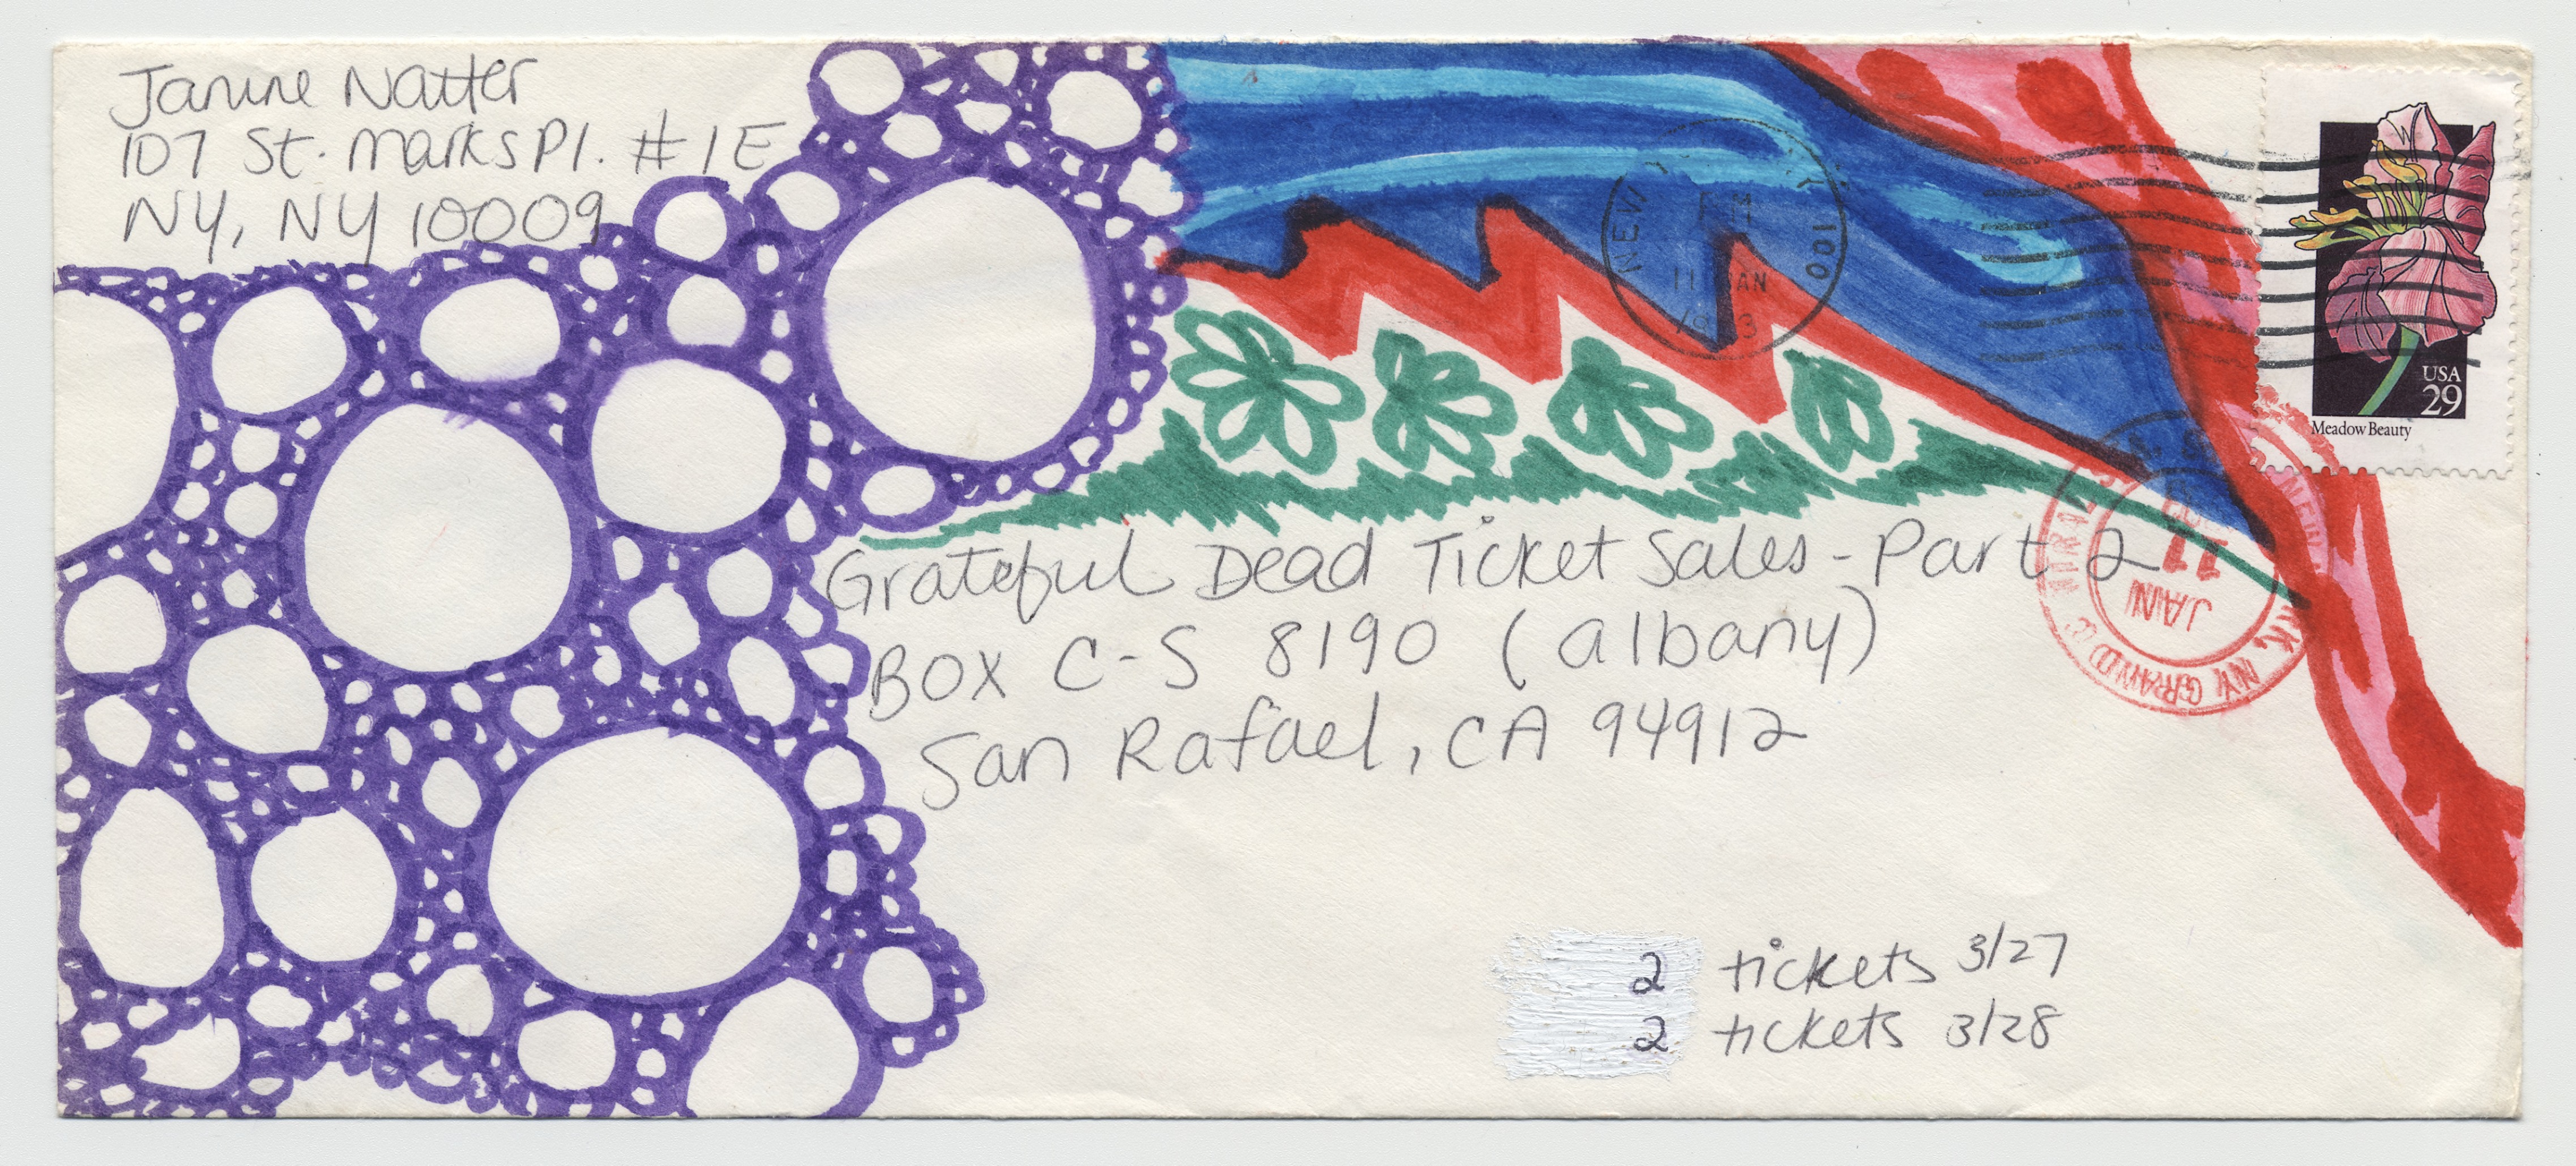 Janine Natter
107 St. Marks Pl. #1E
NY, NY 10009
NEW
PM
11 JAN
100
USA
29
Meadow Beauty
JAN
11
NY GRAND C
Grateful Dead Ticket Sales - Part 2
BOX C-S 8190 (albany)
San Rafael, CA 94912
2 tickets 3/27
2 tickets 3/28